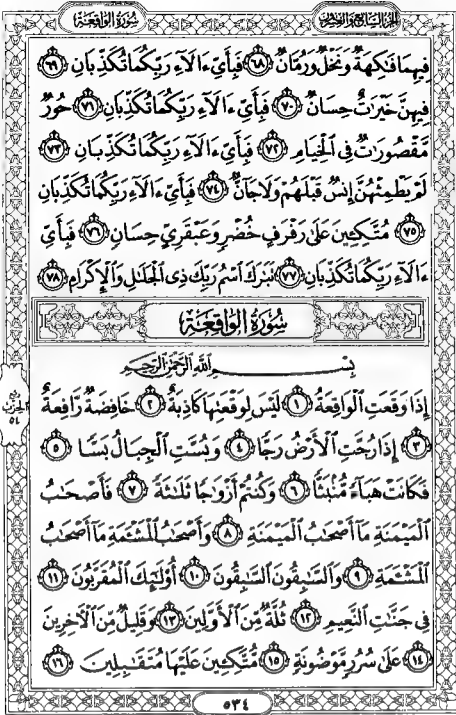 سُورَةُ الواقِعَةِ
الجزء السابع والعشرون
فِيهِمَا فَٰكِهَةٌ وَنَخْلٌ وَرُمَّانٌ ٦٨ فَبِأَىِّ ءَالَآءِ رَبِّكُمَا تُكَذِّبَانِ ٦٩
فِيهِنَّ خَيْرَٰتٌ حِسَانٌ ٧٠ فَبِأَىِّ ءَالَآءِ رَبِّكُمَا تُكَذِّبَانِ ٧١ حُورٌ
مَّقْصُورَٰتٌ فِى ٱلْخِيَامِ ٧٢ فَبِأَىِّ ءَالَآءِ رَبِّكُمَا تُكَذِّبَانِ ٧٣
لَمْ يَطْمِثْهُنَّ إِنسٌ قَبْلَهُمْ وَلَا جَآنٌّ ٧٤ فَبِأَىِّ ءَالَآءِ رَبِّكُمَا تُكَذِّبَانِ
٧٥ مُتَّكِـِٔينَ عَلَىٰ رَفْرَفٍ خُضْرٍ وَعَبْقَرِىٍّ حِسَانٍ ٧٦ فَبِأَىِّ
ءَالَآءِ رَبِّكُمَا تُكَذِّبَانِ ٧٧ تَبَٰرَكَ ٱسْمُ رَبِّكَ ذِى ٱلْجَلَٰلِ وَٱلْإِكْرَامِ ٧٨
سُورَةُ الواقِعَةِ
بِسْمِ ٱللَّهِ ٱلرَّحْمَٰنِ ٱلرَّحِيمِ
إِذَا وَقَعَتِ ٱلْوَاقِعَةُ ١ لَيْسَ لِوَقْعَتِهَا كَاذِبَةٌ ٢ خَافِضَةٌ رَّافِعَةٌ
٣ إِذَا رُجَّتِ ٱلْأَرْضُ رَجًّا ٤ وَبُسَّتِ ٱلْجِبَالُ بَسًّا ٥
فَكَانَتْ هَبَآءً مُّنۢبَثًّا ٦ وَكُنتُمْ أَزْوَٰجًا ثَلَٰثَةً ٧ فَأَصْحَٰبُ
ٱلْمَيْمَنَةِ مَآ أَصْحَٰبُ ٱلْمَيْمَنَةِ ٨ وَأَصْحَٰبُ ٱلْمَشْـَٔمَةِ مَآ أَصْحَٰبُ
ٱلْمَشْـَٔمَةِ ٩ وَٱلسَّٰبِقُونَ ٱلسَّٰبِقُونَ ١٠ أُو۟لَٰٓئِكَ ٱلْمُقَرَّبُونَ ١١
فِى جَنَّٰتِ ٱلنَّعِيمِ ١٢ ثُلَّةٌ مِّنَ ٱلْأَوَّلِينَ ١٣ وَقَلِيلٌ مِّنَ ٱلْـَٔاخِرِينَ
١٤ عَلَىٰ سُرُرٍ مَّوْضُونَةٍ ١٥ مُّتَّكِـِٔينَ عَلَيْهَا مُتَقَٰبِلِينَ ١٦
ربع
الحزب
٥٤
٥٣٤